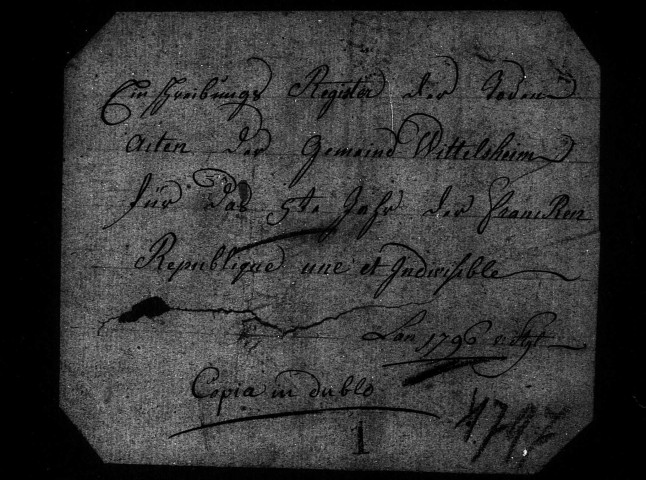 Einschreibungs Register der Toden
Acten der Gemeind Wittelsheim
für das 5te Jahr der Franc
Republique une et Indivisible
Lan 1796
Copia in dublo
1797
1